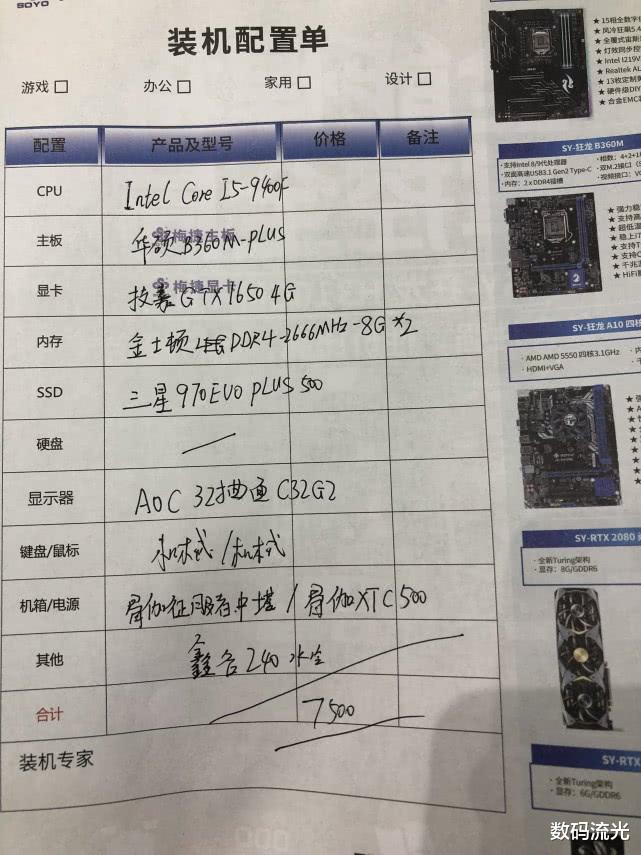 SOYO
装机配置单
游戏 □ 办公 □ 家用 □ 设计 □
配置 产品及型号 价格 备注
CPU Intel Core I5-9400F
主板 华硕B360M-PLUS
梅捷主板
显卡 技嘉GTX1650 4G
梅捷显卡
内存 金士顿 DDR4-2666MHz-8G×2
SSD 三星970EVO PLUS 500
硬盘 —
显示器 AOC 32 C32G2
键盘/鼠标 机械式/机械式
机箱/电源 征服者中塔/ 500
其他 鑫谷240水冷
合计 7500
装机专家
★ 15相全数字
★ 风冷狂飙5.4
★ 全覆式宙斯
★ 灯效同步控
★ Intel I219V
★ Realtek AL
★ 13枚定制
★ 硬件级DIY
★ 合金EMC
SY-狂龙 B360M
· 支持Intel 8/9代处理器 · 相数：4+2+1
· 双面高速USB3.1 Gen2 Type-C · 双M.2接口
· 内存：2 x DDR4插槽 · 视频接口：VG
★ 强力稳
★ 支持高
★ 超低温
★ 稳上i7
★ 支持T
★ 支持C
★ 千兆
★ HiFi
SY-狂龙 A10 四核
· AMD AMD 5550 四核3.1GHz · 内
· HDMI+VGA
SY-RTX 2080
· 全新Turing架构
· 显存：8G/GDDR6
SY-RTX
· 全新Turing架构
· 显存：6G/GDDR6
数码流光